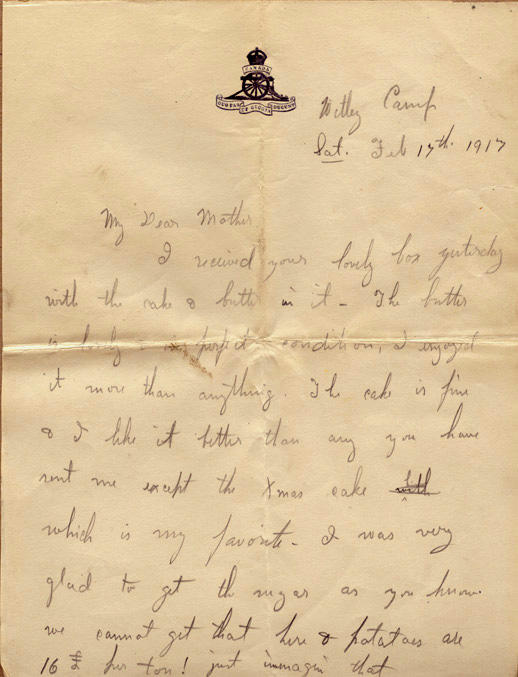 CANADA
QUO FAS ET GLORIA DUCUNT
Witley Camp
Sat. Feb 17th. 1917
My Dear Mother
I received your lovely box yesterday
with the cake & butter in it - The butter
is lovely in perfect condition, I enjoyed
it more than anything. The cake is fine
& I like it better than any you have
sent me except the Xmas cake with
which is my favorite - I was very
glad to get th sugar as you know
we cannot get that here & potatoes are
16 £ per ton! just immagin that